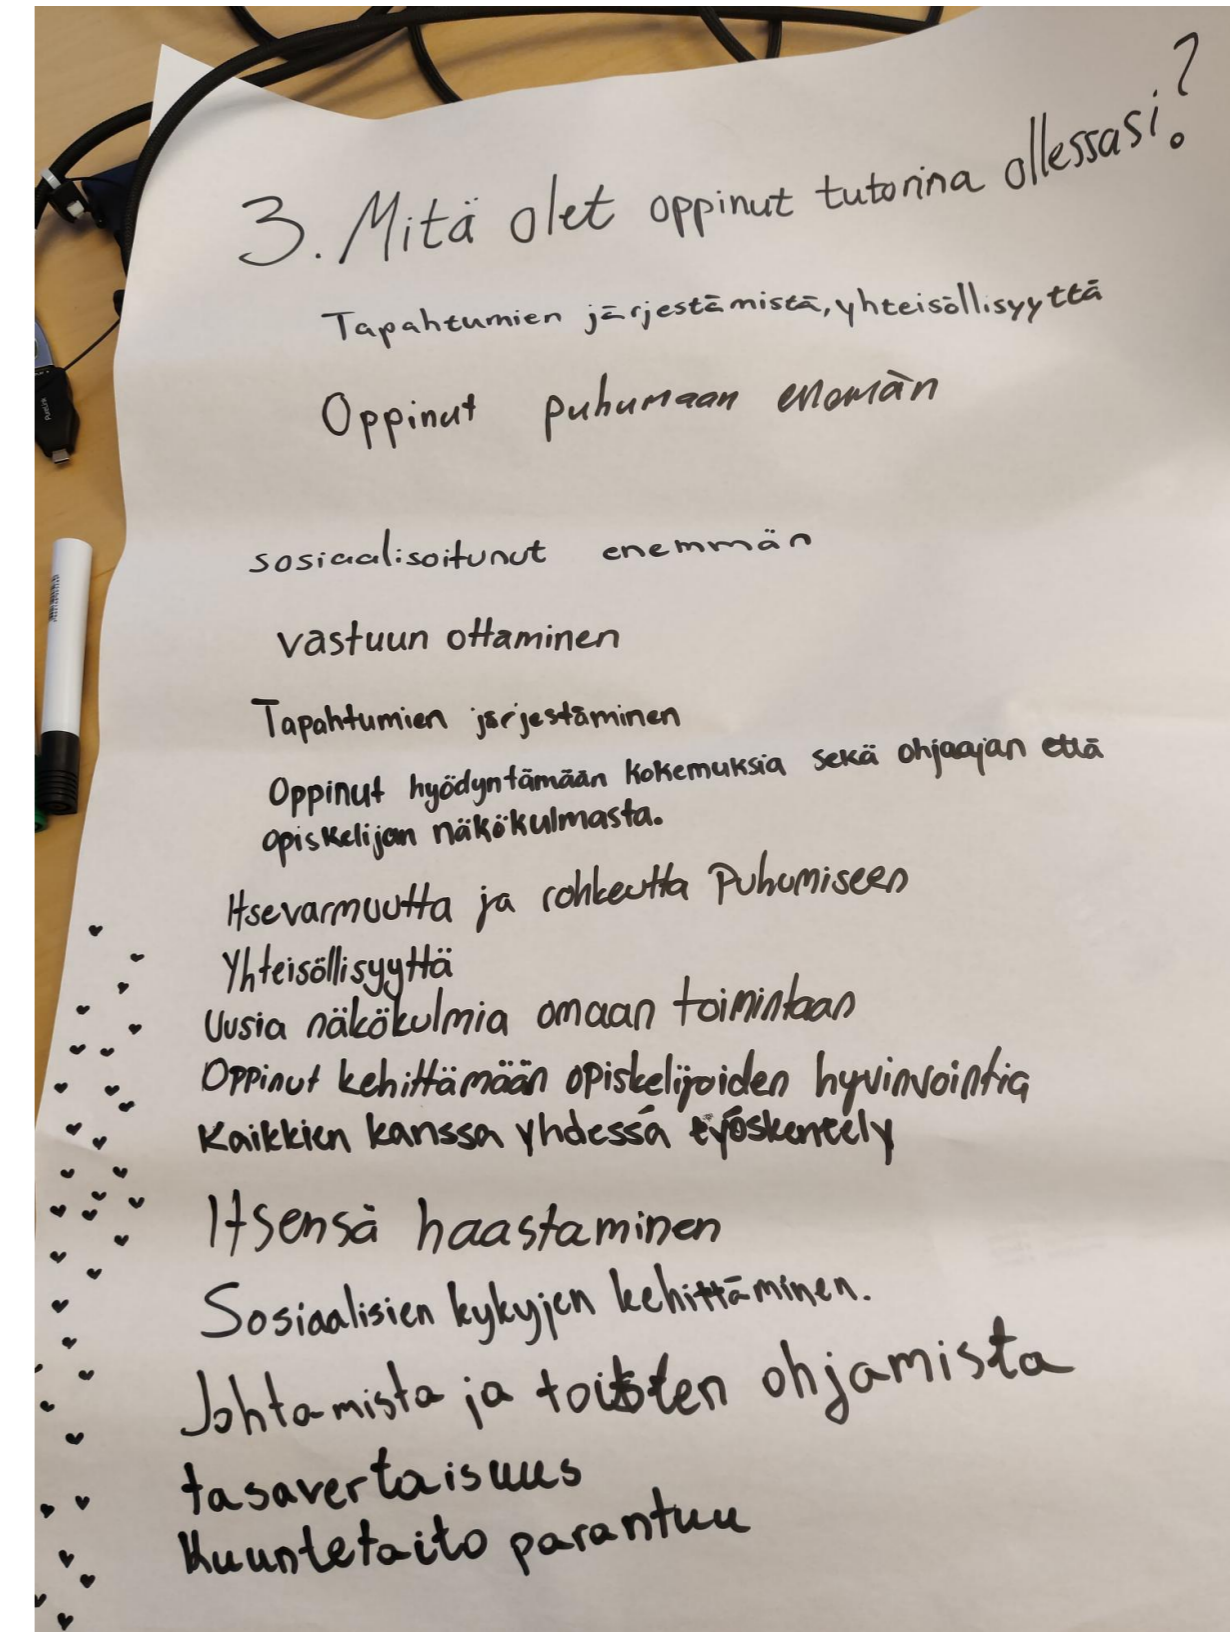 3. Mitä olet oppinut tutorina ollessasi?
Tapahtumien järjestämistä, yhteisöllisyyttä
Oppinut puhumaan enemän
sosiaalisoitunut enemmän
vastuun ottaminen
Tapahtumien järjestäminen
Oppinut hyödyntämään kokemuksia sekä ohjaajan että
opiskelijan näkökulmasta.
Itsevarmuutta ja rohkeutta Puhumiseen
Yhteisöllisyyttä
Uusia näkökulmia omaan toimintaan
Oppinut kehittämään opiskelijoiden hyvinvointia
Kaikkien kanssa yhdessä työskentely
Itsensä haastaminen
Sosiaalisien kykyjen kehittäminen.
Johtamista ja toisten ohjamista
tasavertaisuus
Kuuntetaito parantuu